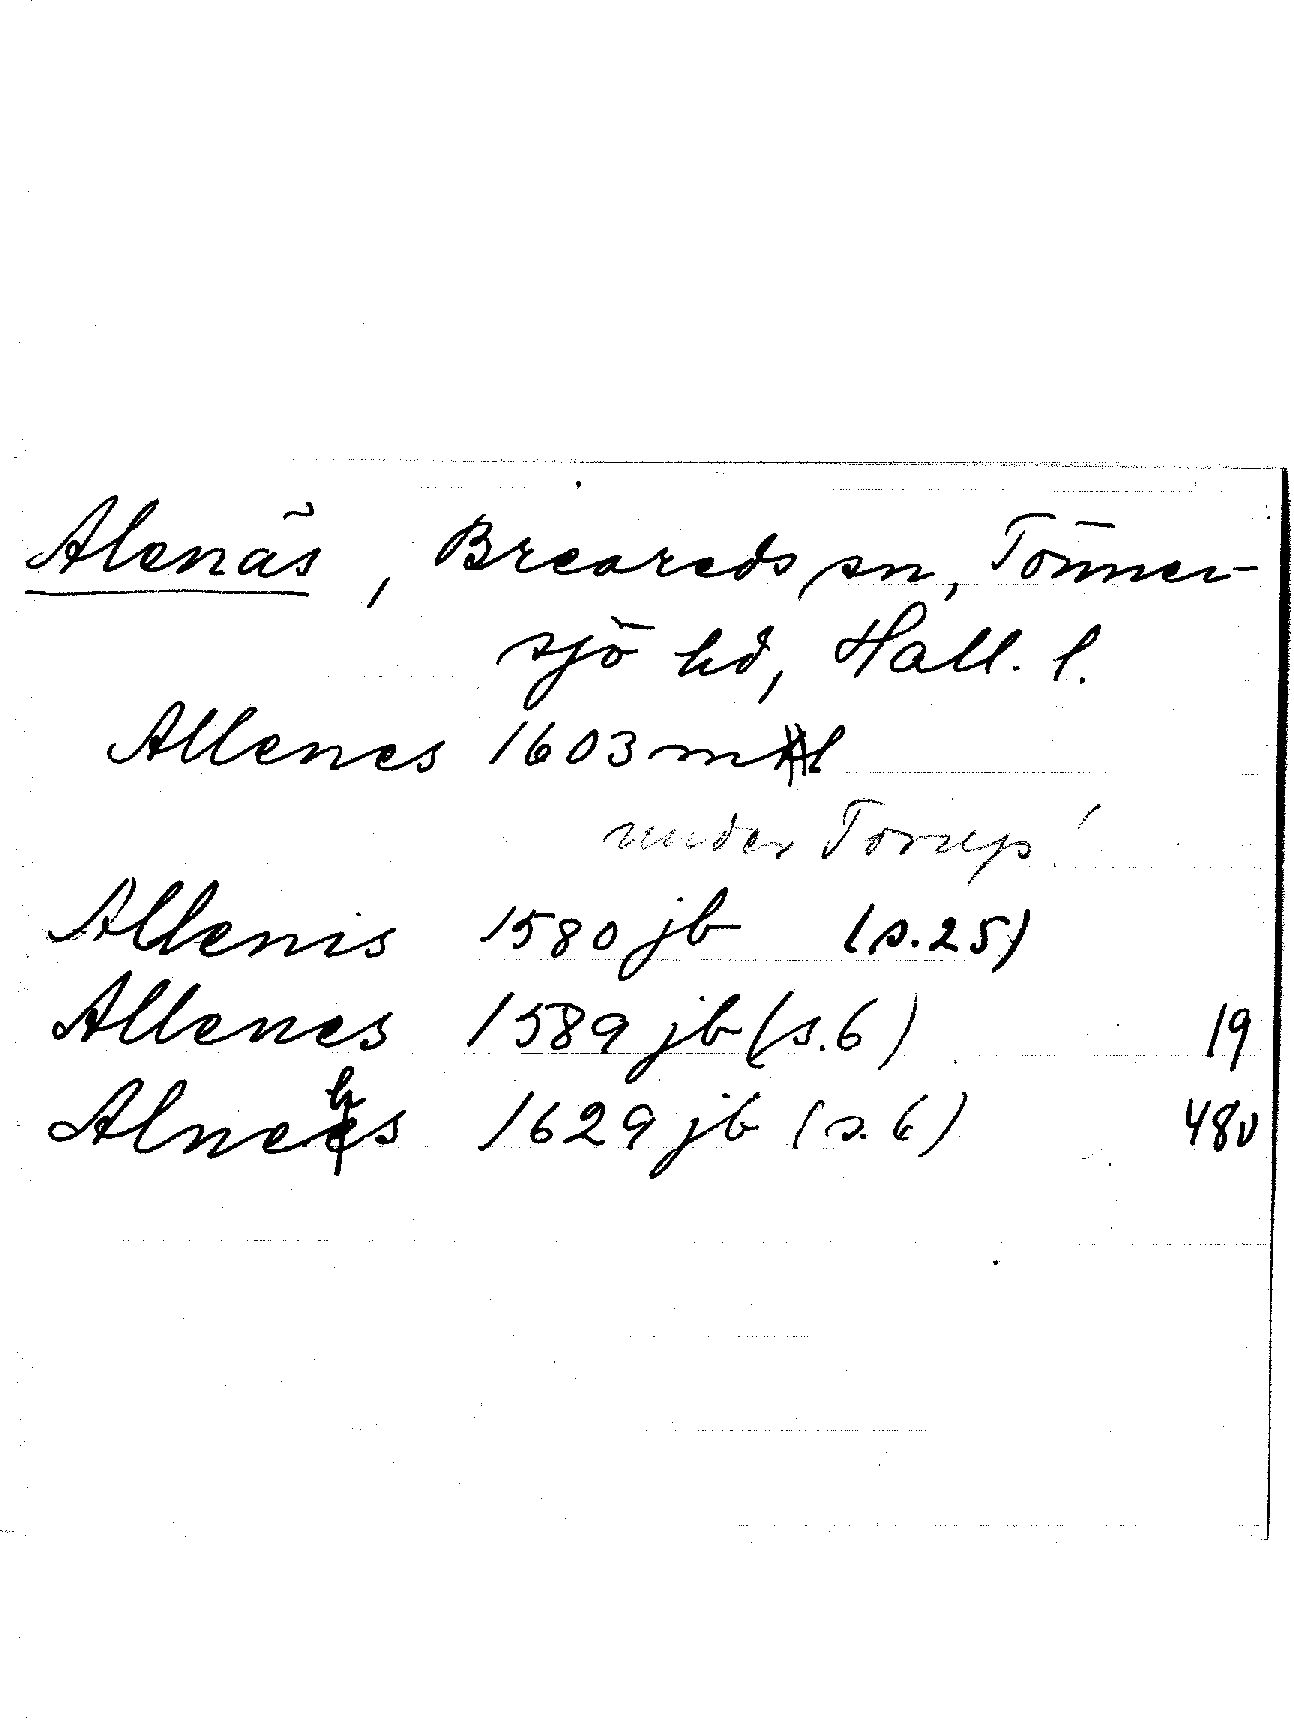 Alenäs, Breareds sn, Tönner-
sjö hd, Hall. l.
Allenes 1603 m
under Torup!
Allenis 1580 jb (s. 25)
Allenes 1589 jb (s. 6) 19
1629 jb (s. 6) 48v